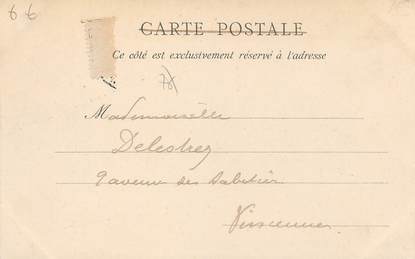 66
CARTE POSTALE
Ce côté est exclusivement réservé à l'adresse
Mademoiselle
Delestrez
9 avenue des Sabotiers
Vincennes